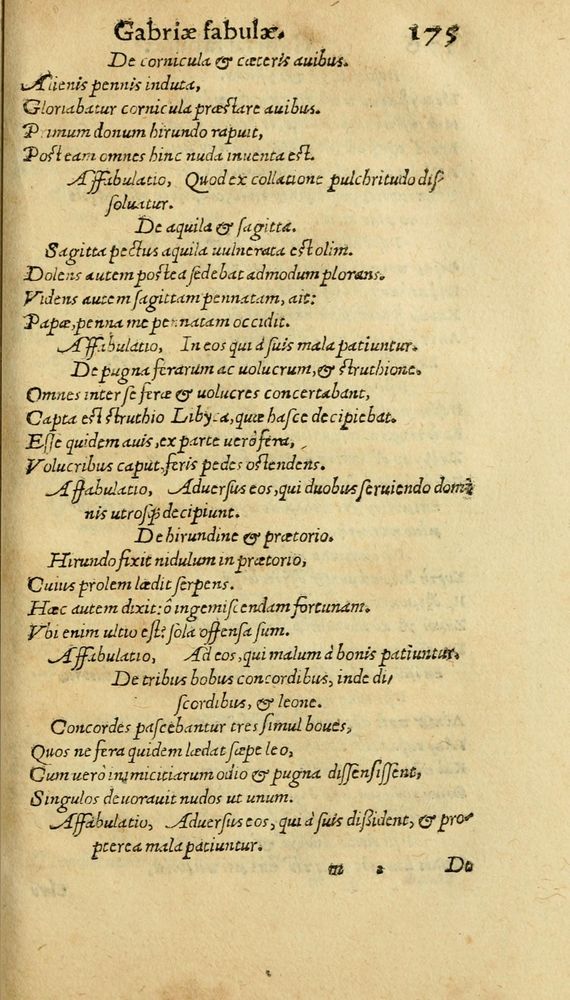 Gabriæ fabulæ. 175
De cornicula & cæteris auibus.
Alienis pennis induta,
Gloriabatur cornicula præstare auibus.
Primum donum hirundo rapuit,
Posteam omnes hinc nuda inuenta est.
Affabulatio, Quod ex collatione pulchritudo dis
soluatur.
De aquila & sagitta.
Sagitta pectus aquila uulnerata est olim.
Dolens autem postea sedebat admodum plorans.
Videns autem sagittam pennatam, ait:
Papæ, penna me pennatam occidit.
Affabulatio, In eos qui à suis mala patiuntur.
De pugna ferarum ac uolucrum, & struthione.
Omnes inter se feræ & uolucres concertabant,
Capta est struthio Libyca, quæ hasce decipiebat.
Esse quidem auis, ex parte uerò fera,
Volucribus caput, feris pedes ostendens.
Affabulatio, Aduersus eos, qui duobus seruiendo domi
nis utrosq́; decipiunt.
De hirundine & prætorio.
Hirundo fixit nidulum in prætorio,
Cuius prolem lædit serpens.
Hæc autem dixit: ô ingemiscendam fortunam.
Vbi enim ultio est? sola offensa sum.
Affabulatio, Ad eos, qui malum à bonis patiuntur.
De tribus bobus concordibus, inde di/
scordibus, & leone.
Concordes pascebantur tres simul boues,
Quos ne fera quidem lædat sæpe leo,
Cum uerò inimicitiarum odio & pugna dissensissent,
Singulos deuorauit nudos ut unum.
Affabulatio, Aduersus eos, qui à suis dißident, & pro/
pterea mala patiuntur.
m 2 De